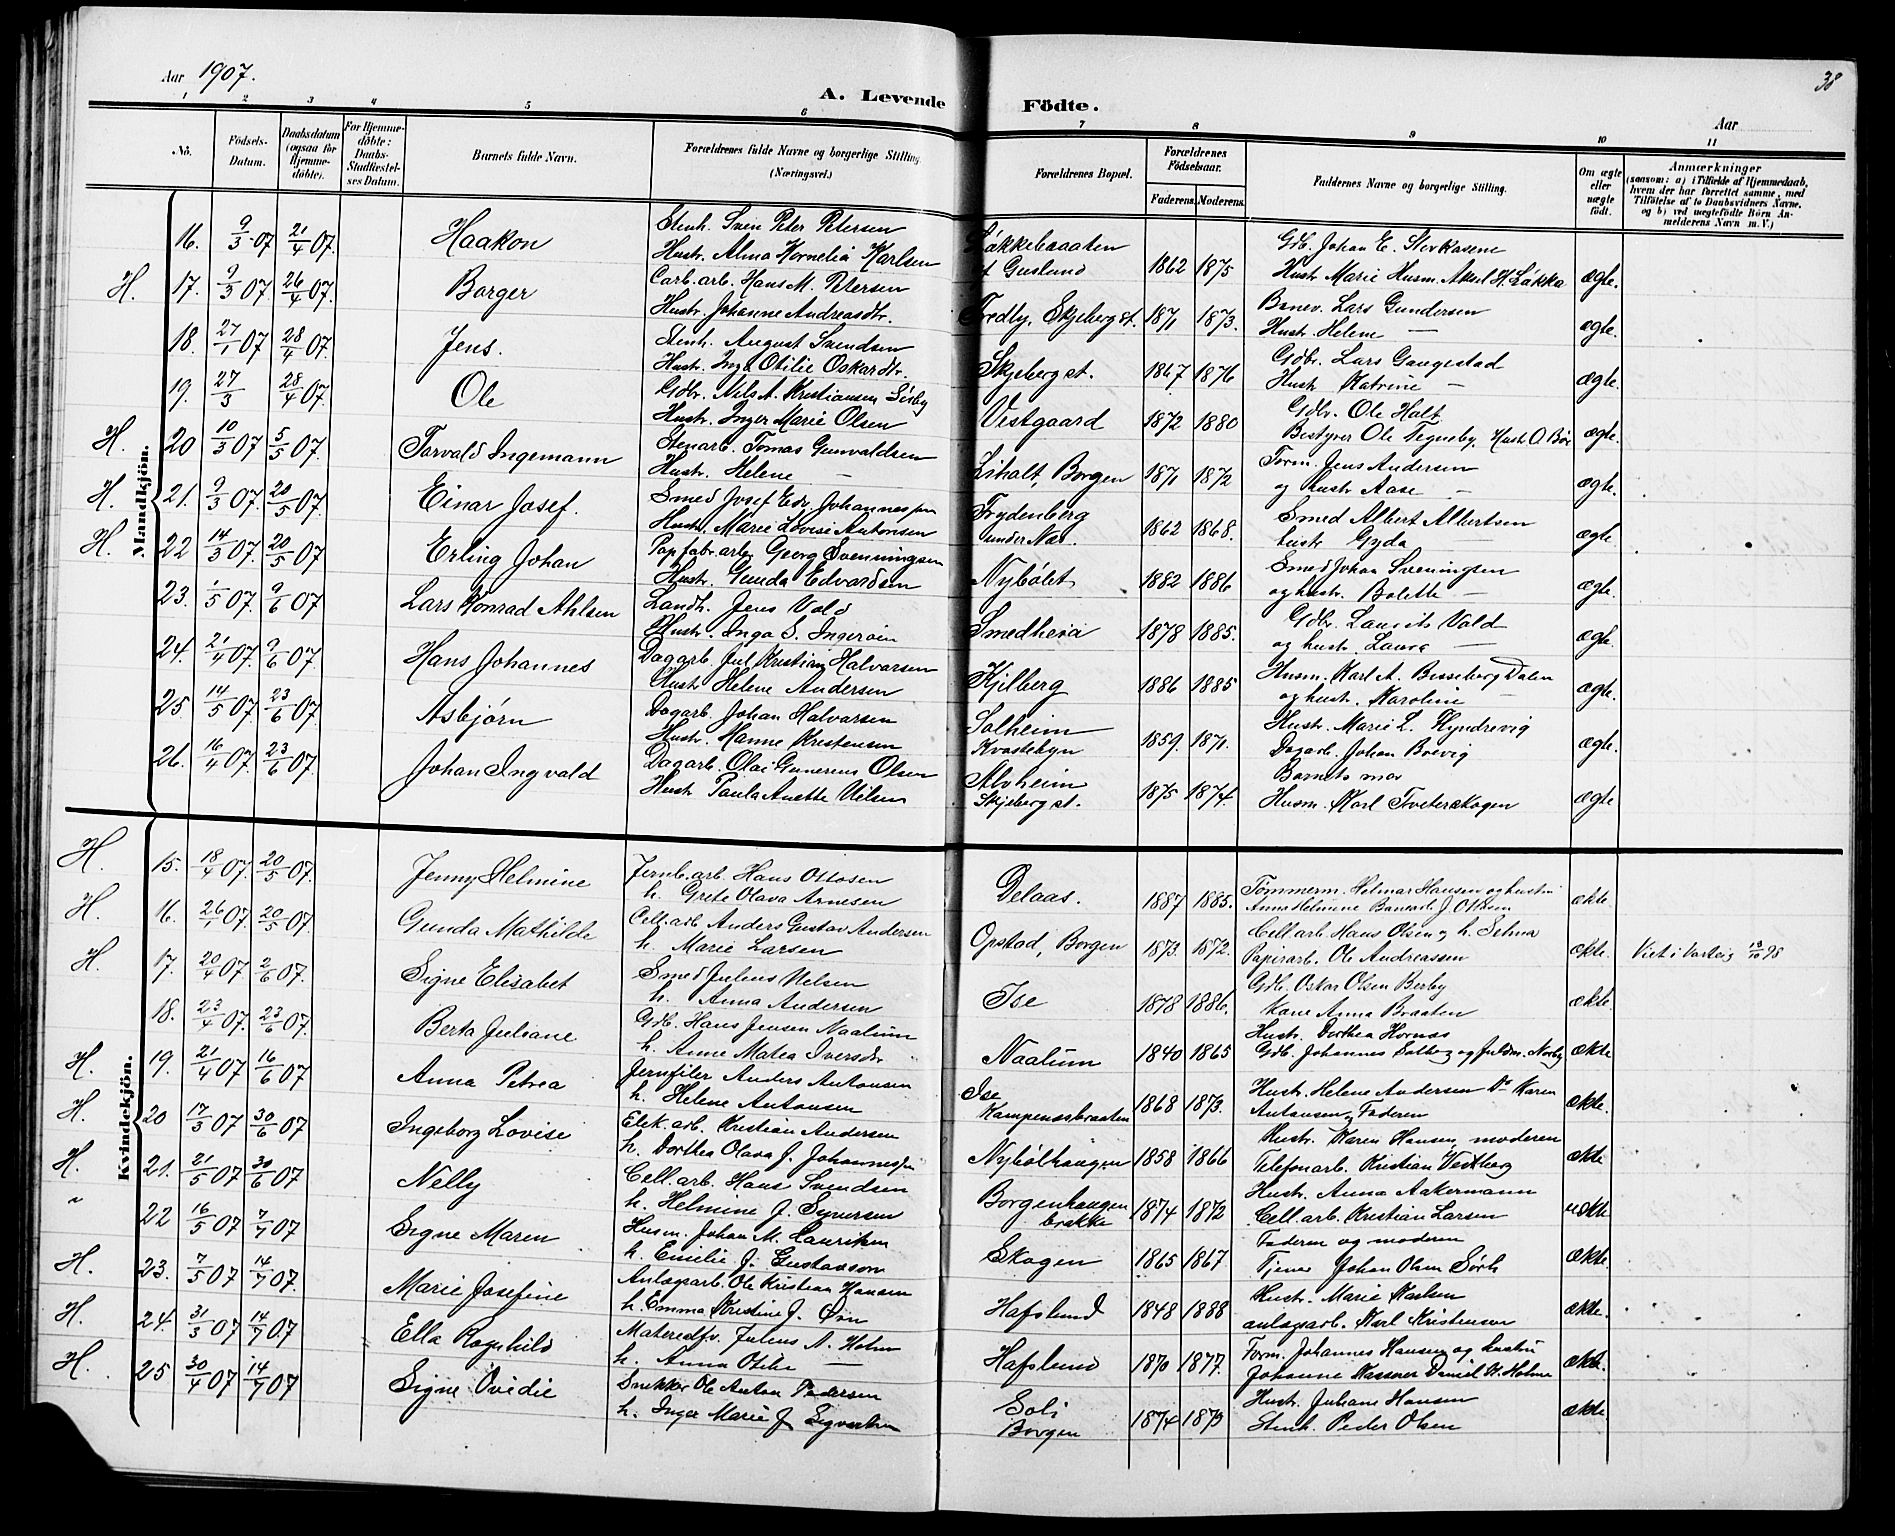 Aar 1907.
38
A. Levende Födte.
Aar
1 2 3 4 5 6 7 8 9 10 11
No.
Födsels-Datum.
Daabsdatum (ogsaa for Hjemmedöbte).
For Hjemmedöbte: Daabs-Stadfæstelses Datum.
Barnets fulde Navn.
Forældrenes fulde Navne og borgerlige Stilling. (Næringsvei.)
Forældrenes Bopæl.
Forældrenes Födselsaar.
Faderens. Moderens.
Faddernes Navne og borgerlige Stilling.
Om ægte eller uægte födt.
Anmærkninger (saasom: a) i Tilfælde af Hjemmedaab, hvem der har forrettet samme, med Tilföielse af to Daabsvidners Navne, og b) ved uægtefödte Börn Anmelderens Navn m. V.)
Mandkjön.
16. 9/3 07 21/4 07. Haakon Stenh. Sven Peter Petersen 1862 1875 Gdb. Johan E. Storkasene ægte.
Hustr. Alma Kornelia Karlsen Løkkebraaten Hustr Marie Husm. Aksel H. Løkka
H. 17. 9/3 07 26/4 07. Borger Carb. arb. Hans M. Petersen Tredby, Skjeberg st. 1871 1873. Lars Gundersen ægte.
Hustr. Johanne Andreasdtr. Hustr. Helene —
18. 27/1 07 28/4 07. Jens. Stenh. August Svendsen Skjeberg st. 1867 1876 Gdbr. Lars Gaugestad ægte.
Hustr. Inga Otilie Oskardtr. Hustr Katrine —
19. 27/3 28/4 07. Ole Gdbr. Nils A. Kristiansen Vestgaard 1872 1880 Gdbr. Ole Holt ægte.
Hustr. Inger Marie Olsen Bestyrer Ole Tegneby, Hustr. O. Bør
H. 20 10/3 07 5/5 07. Torvald Ingemann Stenarb. Tomas Gunvaldsen Liholt, Borgen 1871 1872 Form. Jens Andersen ægte.
Hustr. Helene — og hustr Aase —
H. 21. 9/3 07. 20/5 07. Einar Josef. Smed Josef Edv. Johannessen Frydenberg 1862 1868. Smed Albert Albertsen ægte.
Hustr. Marie Lovise Antonsen under Næs. hustr Gyda —
H. 22 14/3 07. 20/5 07. Erling Johan Papfabr. arb. Georg Svenningsen Nybølet 1882 1886 Smed Johan Sveningsen ægte.
Hustr. Gunda Edvardsen og hustr. Bolette —
23. 1/5 07. 9/6 07 Lars Konrad Ahlsen Landh. Jens Vold Smedheia 1878 1885. Gdb. Laurits Vold ægte.
Hustr. Inga S. og hustr. Laura —
24. 21/4 07. 9/6 07. Hans Johannes Dagarb. Jul Kristian Halvorsen Kjilberg 1886 1885 Husm. Karl A. Bisseberg Dalen ægte.
Hustr Helene Andersen og hustr. Karoline —
25 14/5 07 23/6 07 Asbjørn Dagarb. Johan Halvorsen Solheim 1859. 1871. Hustr. Marie L. Hyndrevig ægte.
Hustr. Hanne Kristensen Kvastebyn Dagarb. Johan Boevig
26. 16/4 07. 23/6 07. Johan Ingvald Dagarb. Olai Gunerius Olsen Alvheim 1875 1874. Barnets mor ægte
Hustr Paula Anette Nilsen Skjeberg st. Husm. Karl Tveterskogen
Kvindekjön.
H. 15. 18/4 07. 20/5 07. Jenny Helmine Jernb. arb. Hans Ottosen Delaas. 1887 1885. Tömmerm. Helmar Hansen og hustru ækte.
h. Grete Olava Arnesen Anna Helmine J. Ottosen
H. 16. 26/1 07. 20/5 07. Gunda Mathilde Cell. arb. Anders Gustav Andersen Opstad, Borgen 1873. 1872. Cell. arb. Hans Olsen og h. Selma ækte. Viet i Varteig 13/10 98
h. Marie Larsen Papirarb. Ole Andreassen
H. 17. 20/4 07. 2/6 07. Signe Elisabet Smed Julius Nilsen Ise 1878 1886. Gdb. Oskar Olsen Berby ækte.
h. Anna Andersen Kone Anna Braaten
18. 23/4 07. 23/6 07. Berta Juliane Gdb. Hans Jensen Naalum Naalum 1840 1865 Hustr. Dorthea Hornæs ækte
h. Anne Matea Iversdtr Gdb. Johannes Solberg og Juldm. Norby
H. 19. 21/4 07 16/6 07 Anna Petrea Jernfiler Anders Antonsen Ise 1868 1873. Hustr. Helene Andersen Do Karen ækte.
h. Helene Antonsen Kampenssbraaten Antonsen, Faderen
H. 20 17/3 07 30/6 07 Ingeborg Lovise Elek. arb. Kristian Andersen Nybølhaugen 1858 1866 Hustr. Karen Hansen, moderen ækte
h. Dorthea Olava J. Johannessen Telefonarb. Kristian Vestberg
H. 21. 21/5 07 30/6 07 Nelly Cell. arb. Hans Svendsen Borgenhaugen 1874 1872 Hustr. Anna Aakermann ækte
h. Helmine J. Syversen brakke Cell. arb. Kristian Larsen
" 22 16/5 07 7/7 07 Signe Maren Husm. Johan M. Lauritsen Skogen 1865 1867 Faderen og moderen ækte
h. Emilie J. Gustavson Tjener Johan Olsen Sørb
H. 23. 7/5 07 14/7 07. Marie Josefine Anlægsarb. Ole Kristian Hansen Hafslund 1848 1888 Hustr. Marie Karlsen ækte
h. Emma Kristine J. Øin anlægsarb. Karl Kristenson
H. 24. 31/3 07 14/7 07 Ella Ragnhild Julius A. Holm Hafslund 1870 1877. Form. Johannes Hansen og hustru ækte.
h. Anna Otilie — Johanne Kasserer Daniel K. Holme
H. 25 30/4 07 14/7 07 Signe Ovidie Snekker Ole Anton Pedersen Soli 1874 1879 Hustr. Juliane Hansen ækte.
h. Inger Marie J. Sigvartsen Borgen Stenh. Peder Olsen